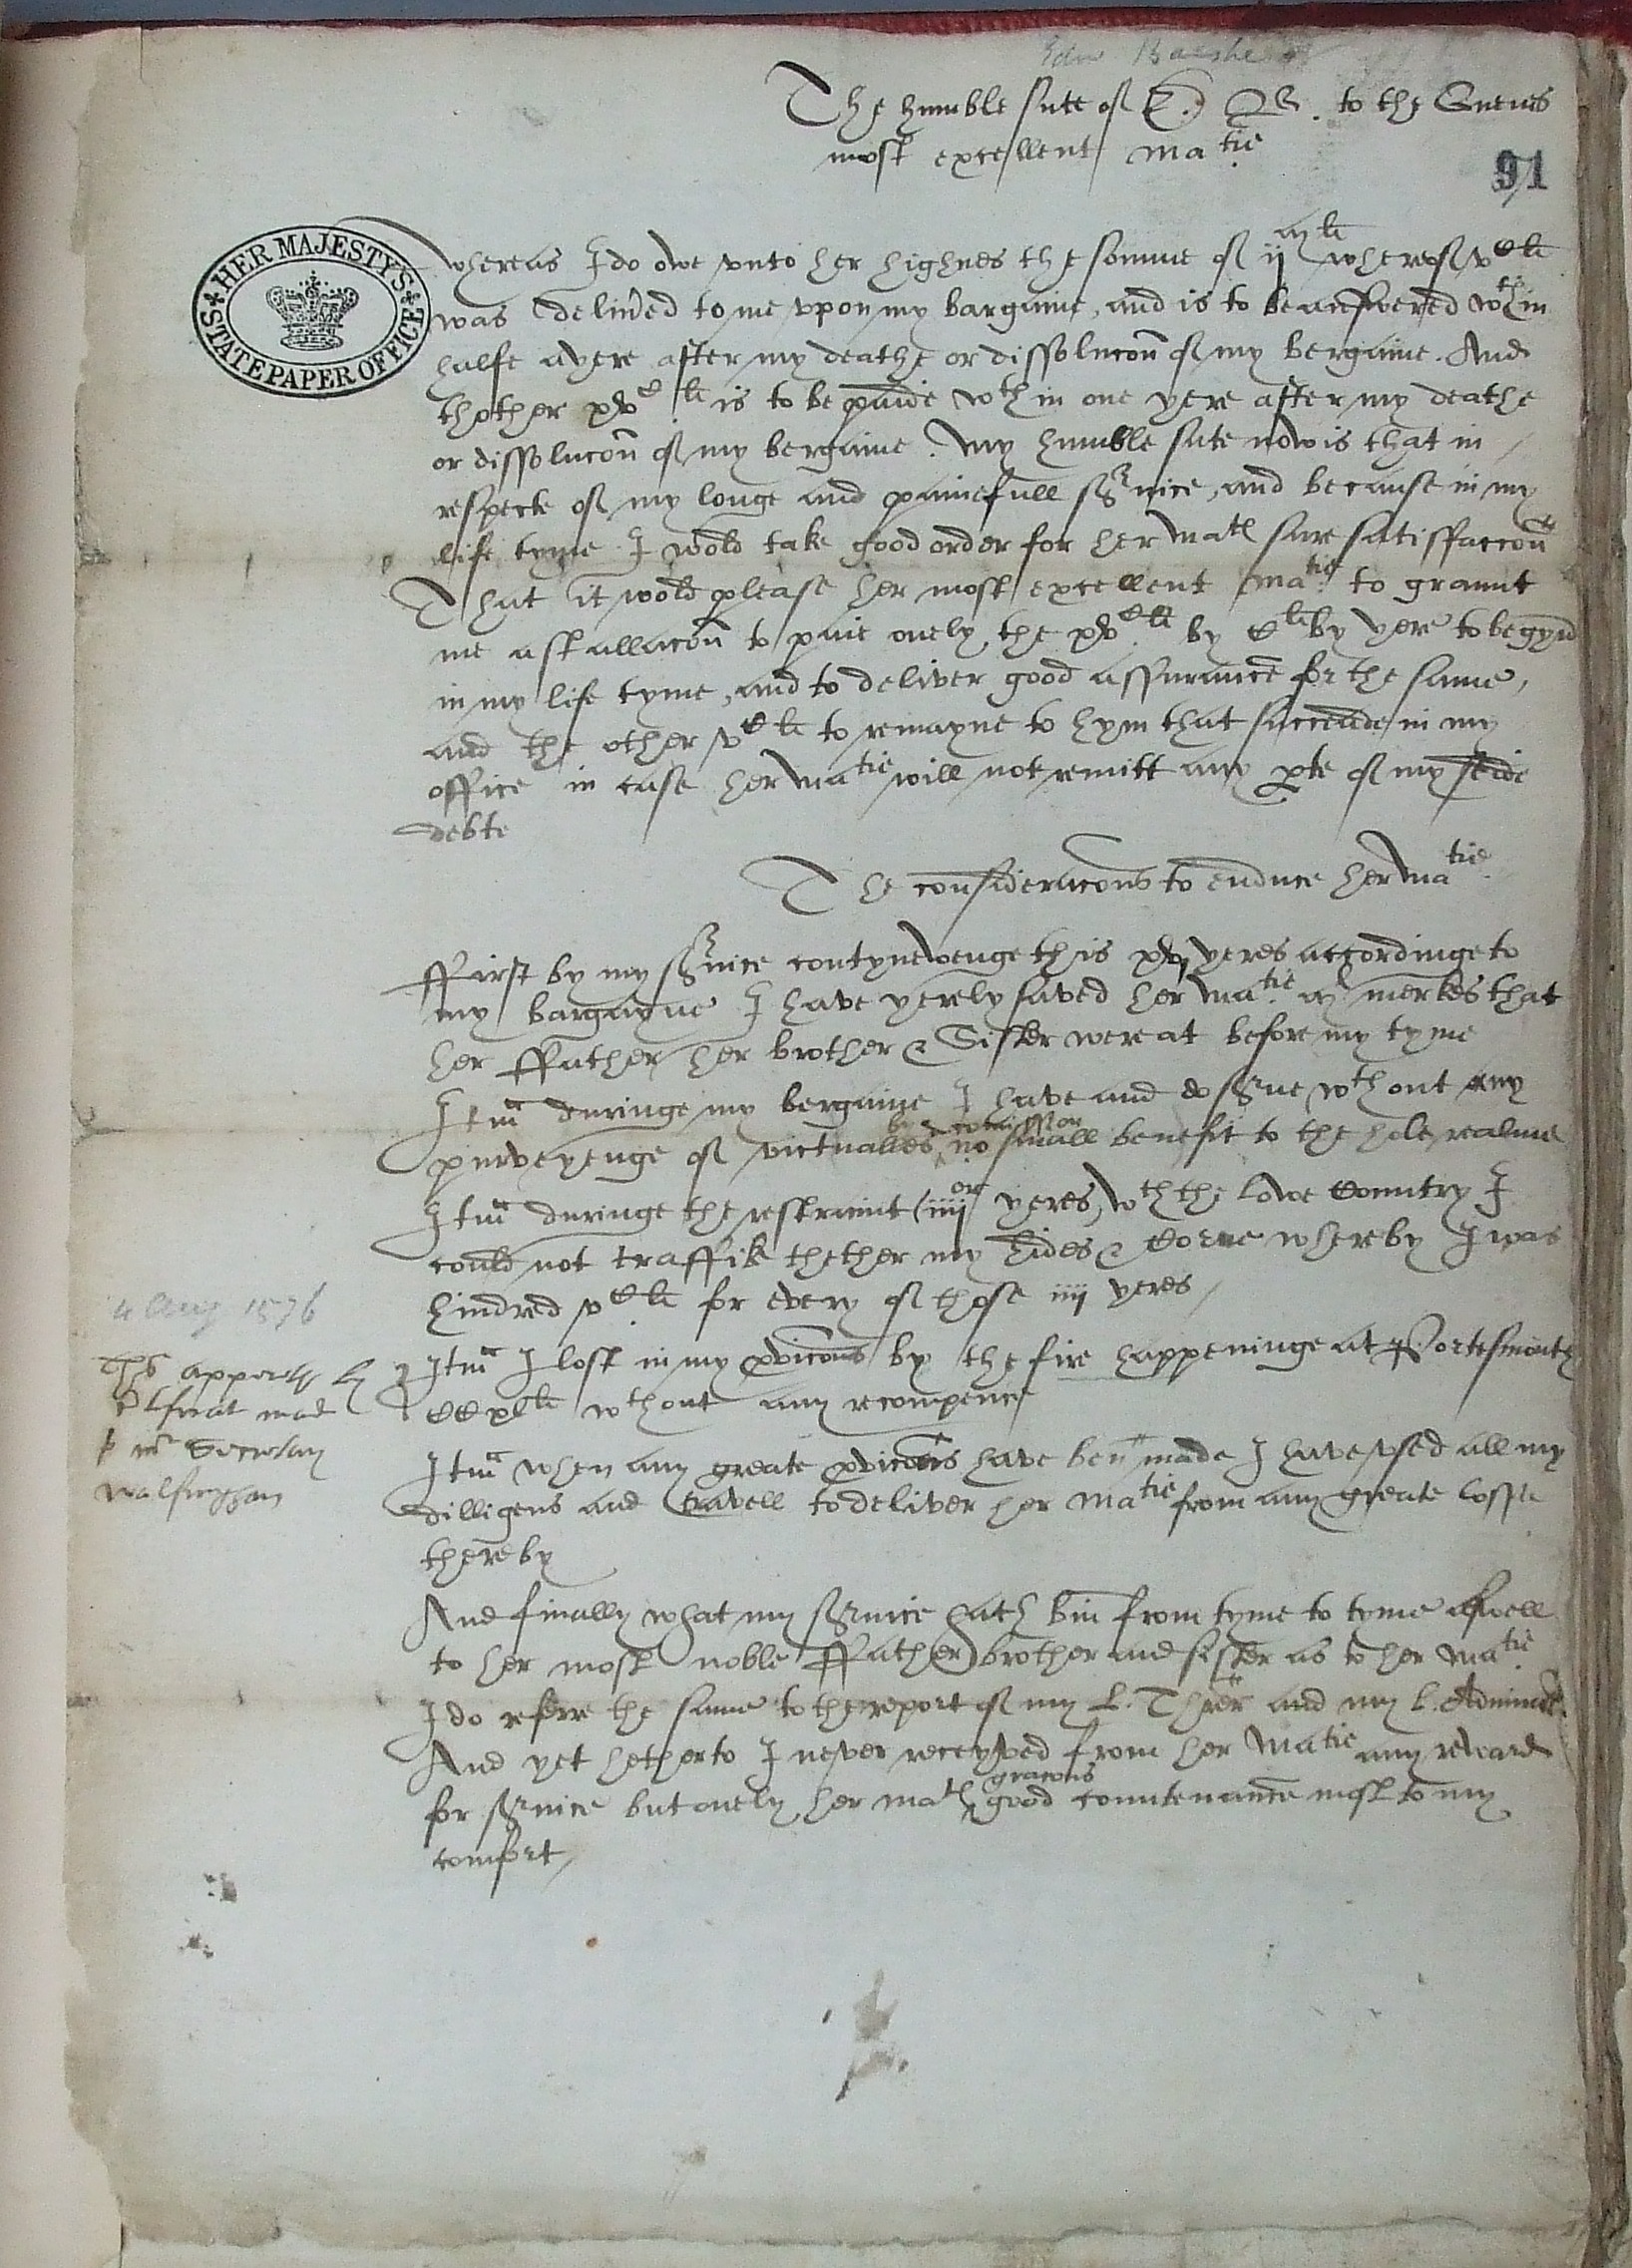 Edw Baeshe
The humble sute of E. B. to the Quenes
most excellent matie
91
HER MAJESTY'S STATE PAPER OFFICE
whereas I do owe vnto her highnes the somme of ij ml li whereof vC li
was deliu'ed to me vpon my bargaine, and is to be answered wthin
halfe a yere after my deathe or dissolucon of my bergaine. And
thother xvC li is to be paide wthin one yere after my deathe
or dissolucon of my bergaine. My humble sute now is that in
respecte of my longe and painefull s'uice, and because in my
life tyme I wold take good order for her matis sure satisfaccon
That it wold please her most excellent matie to graunt
me a stallacon to paie onely the xvC li by C li by yere to begyn
in my life tyme, and to deliver good assurance for the same,
and the other vC li to remayne to hym that succeade in my
office in case her matie will not remitt any pte of my seide
debte
The consideracons to enduce her matie
ffirst by my s'uice contynewenge this xvj yeres accordinge to
my bargayne I have yerely saved her matie ml merkes that
her ffather her brother & Sister were at before my tyme
Itm duringe my bergaine I have and do s'ue wthout any
purveyenge of victualles by comission no small benefit to the hole realme
Itm duringe the restraint (iiijor yeres) wth the Lowe Countrey I
could not traffik thether my hides & Corne whereby I was
hindred vC li for every of those iiij yeres
4 Aug 1576
Itm I lost in my p'uicons by the fire happeninge at Portesmouth
CCxl li wthout any recompence
This appereth by
certificat made
to mr Secretary
walsingham
Itm when any greate p'uicons have ben made I have vsed all my
dilligens and travell to deliver her matie from any greate losse
thereby
And finally what my s'uice hath bin from tyme to tyme aswell
to her most noble ffather brother and sister as to her matie
I do referre the same to the report of my L. Threr and my L. Admirall
And yet hetherto I never receyved from her matie any reward
for s'uice but onely her matis gracous good countenance most to my
comfort